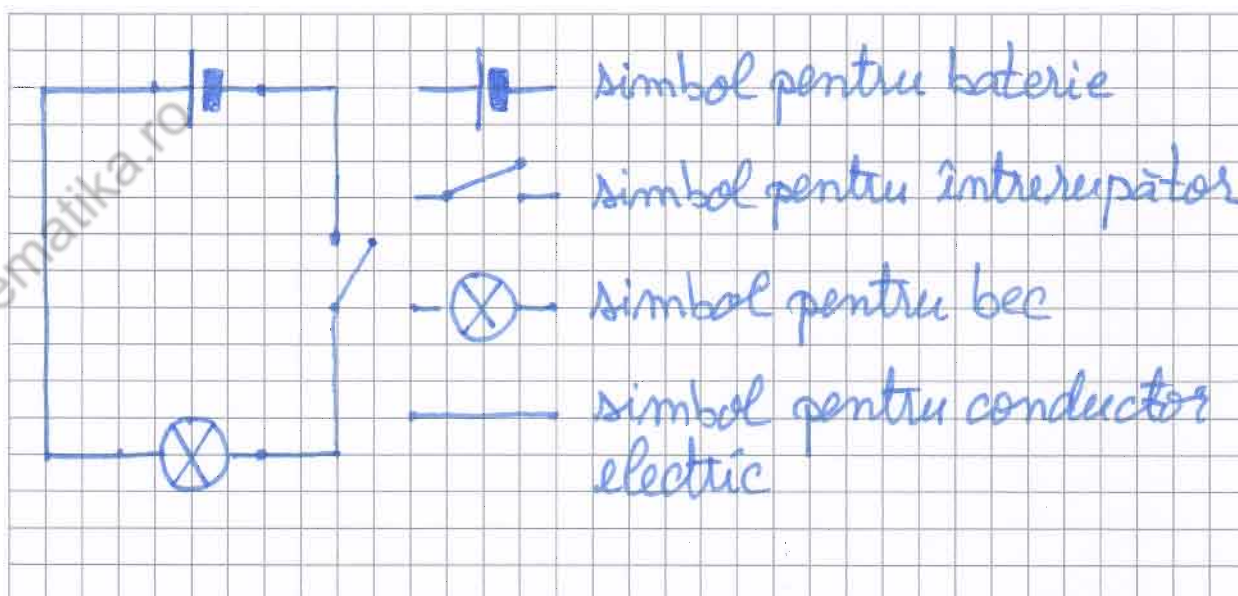 simbol pentru baterie
simbol pentru întrerupător
simbol pentru bec
simbol pentru conductor
electric
ematika.ro